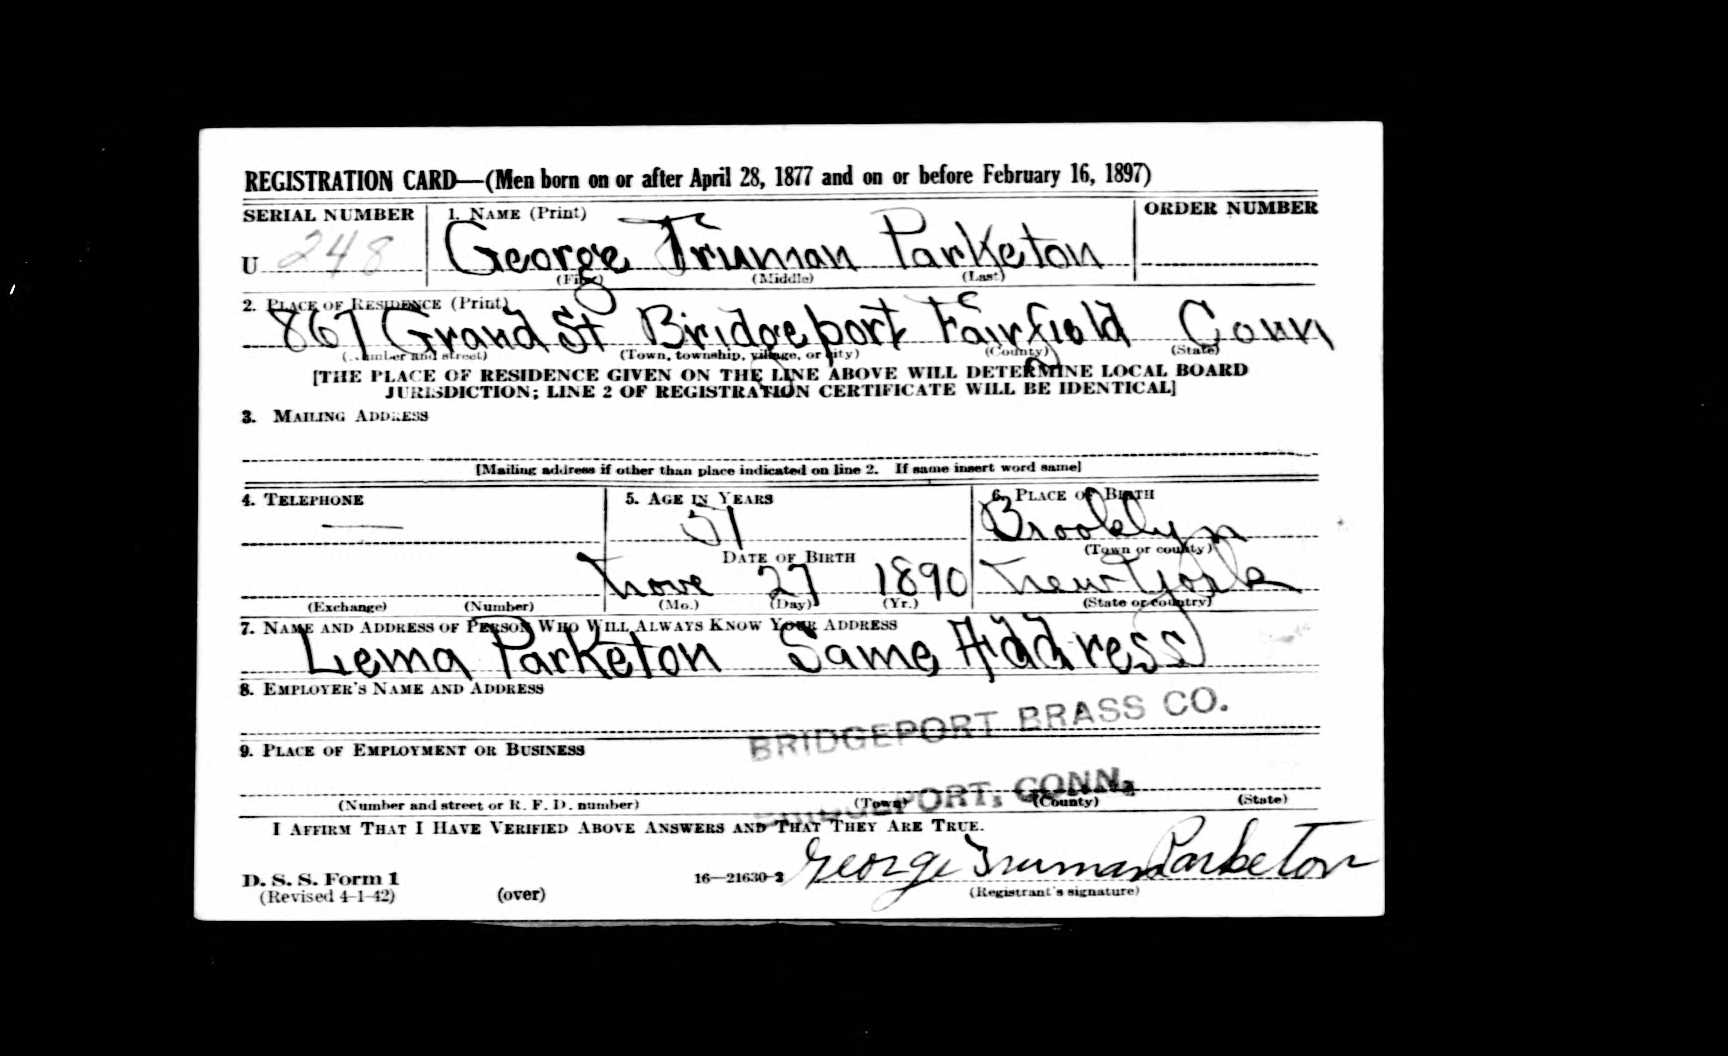 REGISTRATION CARD—(Men born on or after April 28, 1877 and on or before February 16, 1897)
SERIAL NUMBER 1. NAME (Print) ORDER NUMBER
U 248 George Truman Parketon
(First) (Middle) (Last)
2. PLACE OF RESIDENCE (Print)
867 Grand St Bridgeport Fairfield Conn
(Number and street) (Town, township, village, or city) (County) (State)
[THE PLACE OF RESIDENCE GIVEN ON THE LINE ABOVE WILL DETERMINE LOCAL BOARD
JURISDICTION; LINE 2 OF REGISTRATION CERTIFICATE WILL BE IDENTICAL]
3. MAILING ADDRESS
[Mailing address if other than place indicated on line 2. If same insert word same]
4. TELEPHONE 5. AGE IN YEARS 6. PLACE OF BIRTH
51 Brooklyn
DATE OF BIRTH (Town or county)
Nove 27 1890 New York
(Exchange) (Number) (Mo.) (Day) (Yr.) (State or country)
7. NAME AND ADDRESS OF PERSON WHO WILL ALWAYS KNOW YOUR ADDRESS
Lema Parketon Same Address
8. EMPLOYER'S NAME AND ADDRESS
BRIDGEPORT BRASS CO.
9. PLACE OF EMPLOYMENT OR BUSINESS
BRIDGEPORT, CONN.
(Number and street or R. F. D. number) (Town) (County) (State)
I AFFIRM THAT I HAVE VERIFIED ABOVE ANSWERS AND THAT THEY ARE TRUE.
George Truman Parketon
D. S. S. Form 1 16—21630-2 (Registrant's signature)
(Revised 4-1-42) (over)